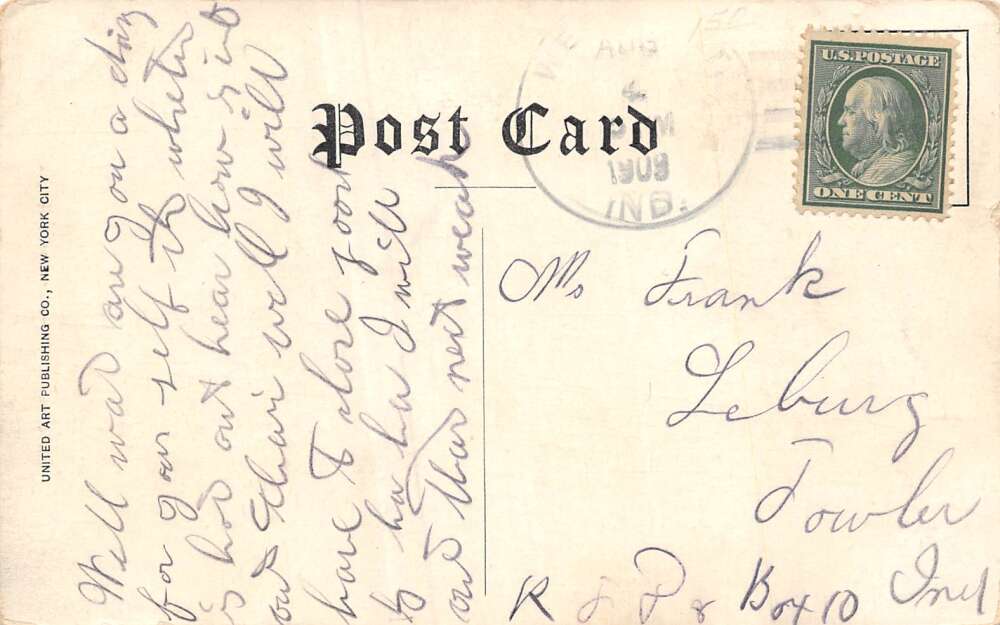 Post Card
UNITED ART PUBLISHING CO., NEW YORK CITY
AUG
4
M
1909
IND.
U.S. POSTAGE
ONE CENT
Well wat are you a doing
for your self the whether
is hot out hear how is it
out thair well I will
have to close for
by ha ha I will
out thar next weak
Mr Frank
Leburg
Fowler
Ind
R F D & Box 10